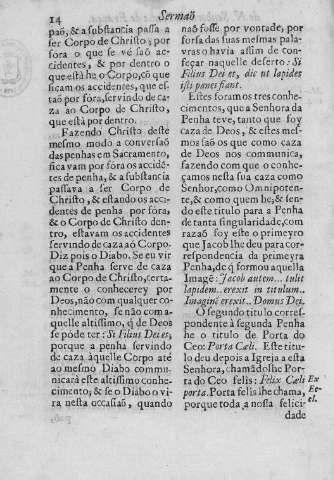 14
Sermaõ
paõ, & a substancia passa a
ser Corpo de Christo; por
fora o que se vé saõ ac-
cidentes, & por dentro o
que está he o Corpo, cõ que
ficam os accidentes, que es-
taõ por fóra, servindo de ca-
za ao Corpo de Christo,
que está por dentro.
Fazendo Christo deste
mesmo modo a conversaõ
das penhas em Sacramento,
ficavam por fora os accidē-
tes de penha, & a substancia
passava a ser Corpo de
Christo, & estando os acci-
dentes de penha por fóra,
& o Corpo de Christo den-
tro, estavam os accidentes
servindo de caza aó Corpo.
Diz pois o Diabo. Se eu vir
que a Penha serve de caza
ao Corpo de Christo, certa-
mente o conhecerey por
Deos, não com qualquer co-
nhecimento, se não com a-
quelle altissimo, q̃ de Deos
se póde ter: Si Filius Dei es,
porque a penha servindo
de caza àquelle Corpo até
ao mesmo Diabo commu-
nicará este altissimo conhe-
cimento; & se o Diabo o vi-
ra nesta occasiaõ, quando
naõ fosse por vontade, por
forsa das suas mesmas pala-
vras o havia assim de con-
feçar naquelle deserto: Si
Filius Dei es, dic ut lapides
isti panes fiant.
Estes foram os tres conhe-
cimentos, que a Senhora da
Penha teve, tanto que foy
caza de Deos, & estes mes-
mos saõ os que como caza
de Deos nos communica,
fazendo com que o conhe-
çamos nesta sua caza como
Senhor, como Omnipoten-
te, & como quem he, & sen-
do este titulo para a Penha
de tanta singularidade, com
razaõ foy este o primeyro
que Jacob lhe deu para cor-
respondencia da primeyra
Penha, de q̃ formou aquella
Imagē: Jacob autem... tulit
lapidem.. erexit in titulum..
Imaginē erexit.. Domus Dei.
O segundo titulo corres-
pondente à segunda Penha
he o titulo de Porta do
Ceo: Porta Cæli. Este titu-
lo deu depois a Igreja a esta
Senhora, chamãdolhe Por-
ta do Ceo felis: Felix Cæli
porta. Porta felis lhe chama,
porque toda a nossa felici-
Ex
Ec-
cl.
dade